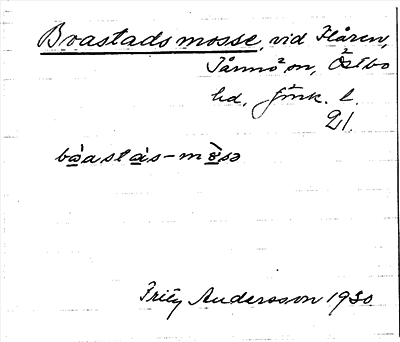 Brastads mosse, vid Flåren,
Tånnö sn, Östbo
hd, Jönk. l.
21.
båastas-mosə
Fritz Andersson 1930